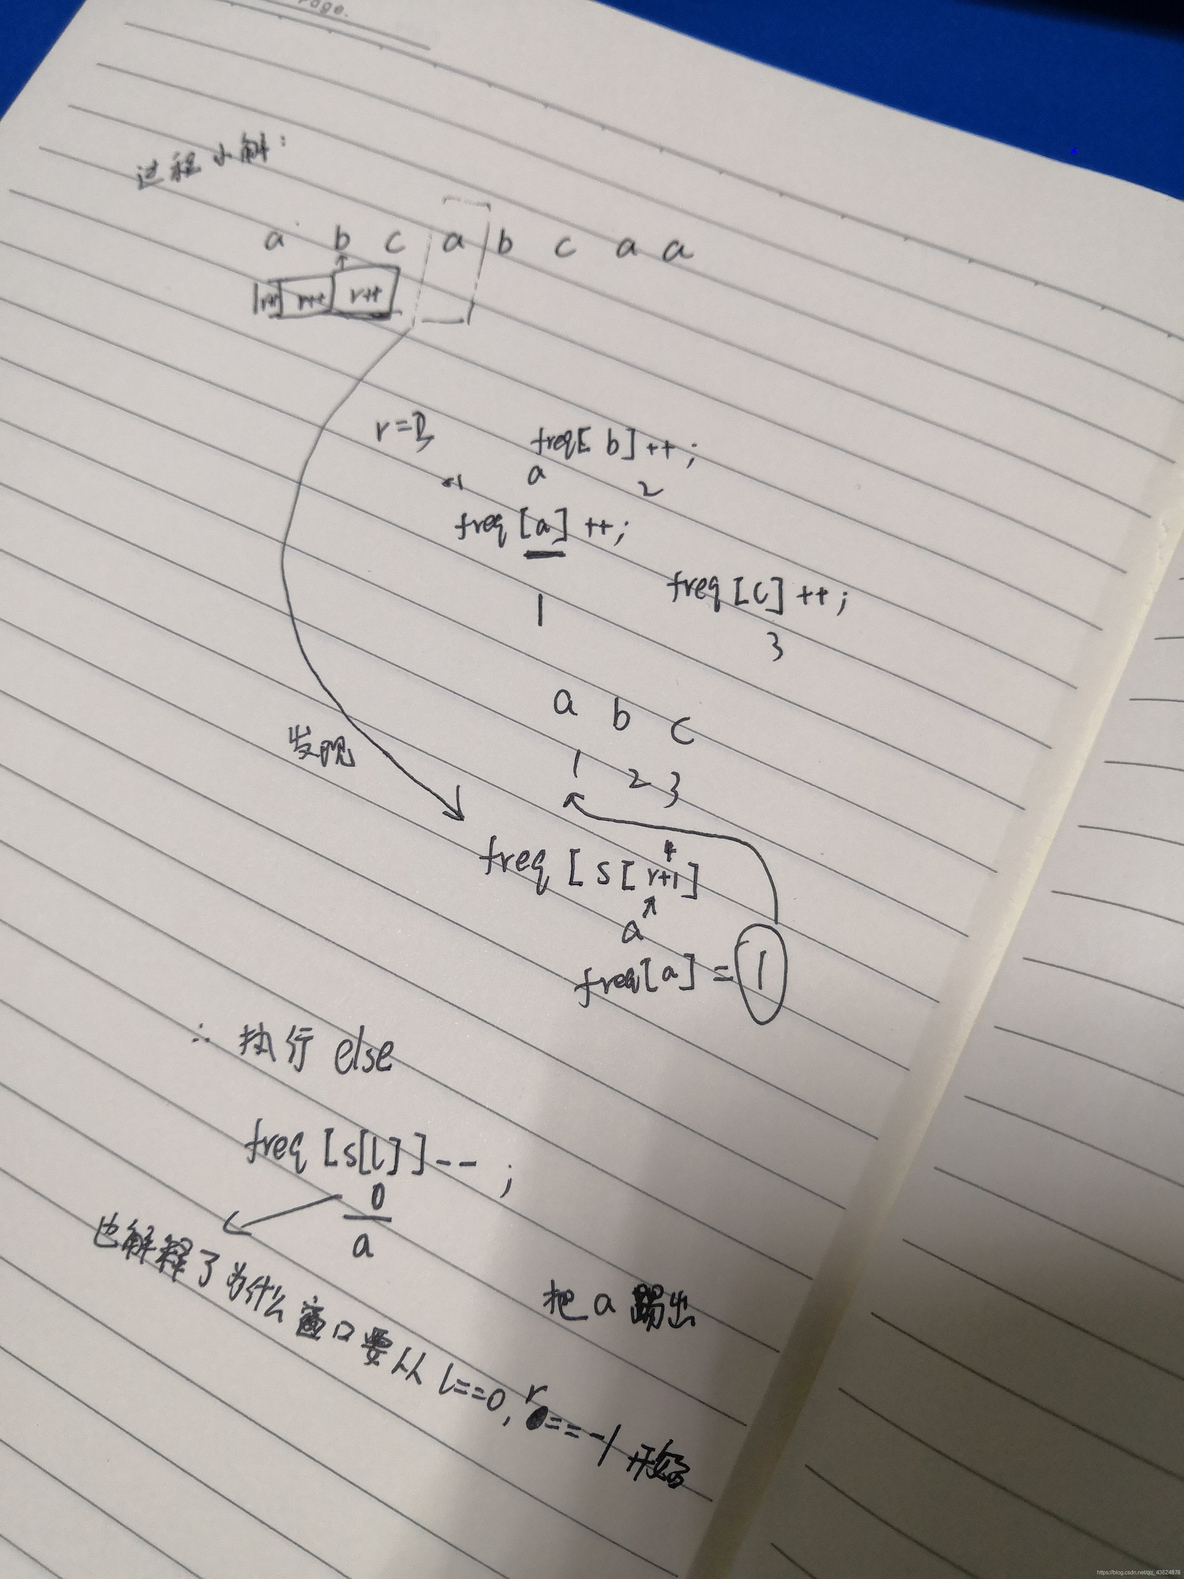 过程小解:
a b c a b c a a
r++ r++ r++
r=3 freq[b]++;
a 2
freq[a]++;
freq[c]++;
1
3
a b c
1 2 3
发现
freq[s[r+1]
a
freq[a]=1
∴ 执行 else
freq[s[l]]--;
0
a
把a踢出
也解释了为什么窗口要从l==0,r==-1开始
https://blog.csdn.net/qq_43624878